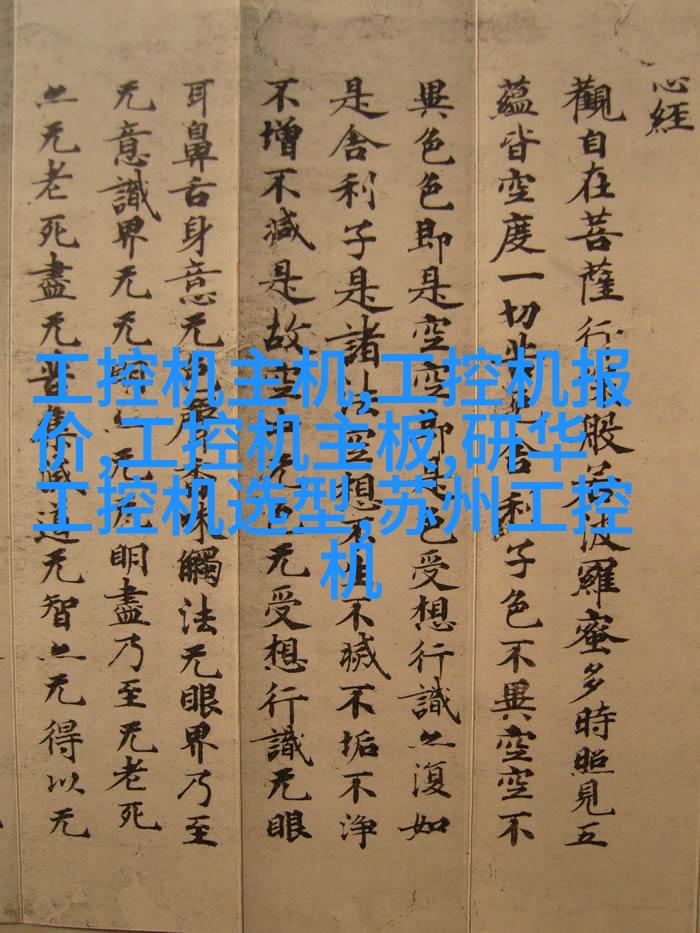 心经
觀自在菩薩行深般若波羅蜜多時照見五
蘊皆空度一切 舍利子色不異空空不
異色色即是空空即是色受想行識亦復如
是舍利子是諸法空想不生不滅不垢不浄
不增不减是故空中无色无受想行識无眼
耳鼻舌身意无色聲香味觸法无眼界乃至
无意識界无无明亦无无明盡乃至无老死
亦无老死盡无苦集滅道无智亦无得以无
工控机主机,工控机报
价,工控机主板,研华
工控机选型,苏州工控
机